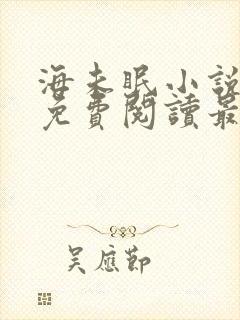 海未眠小說
免費閱讀最
吳應節